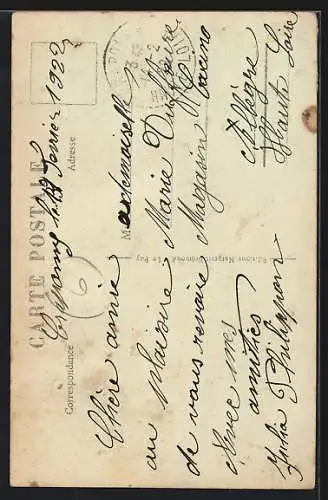 CARTE POSTALE
Correspondance
Adresse
Janvier 1922
Chère amie
au plaisir
de vous revoir
Avec mes
amitiés
Julia Philippon
6
Editions Margerit-Brémond - Le Puy
Mademoiselle
Marie
Magasin
Allègre
Haute Loire